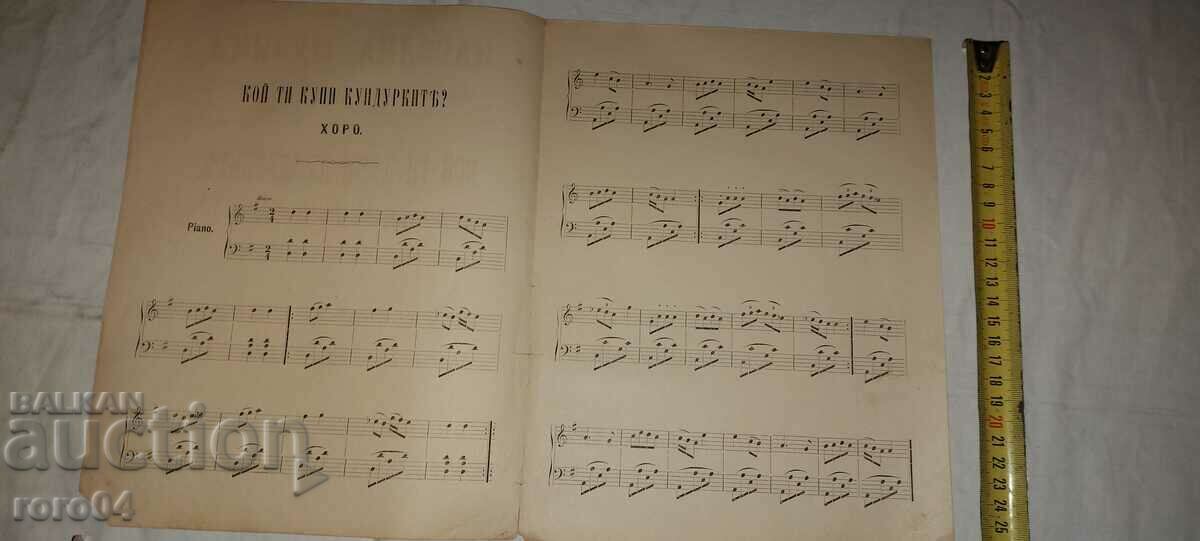 КОЙ ТИ КУПИ КУНДУРКИТѢ?
ХОРО.
Piano.
BALKAN
auction
roro04
2 3 4 5 6 7 8 9 10 11 12 13 14 15 16 17 18 19 20 21 22 23 24 25